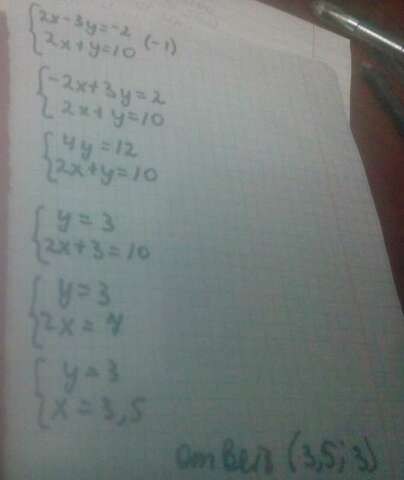 2x-3y=-2
2x+y=10 (-1)
-2x+3y=2
2x+y=10
4y=12
2x+y=10
y=3
2x+3=10
y=3
2x=7
y=3
x=3,5
ответ (3,5;3)